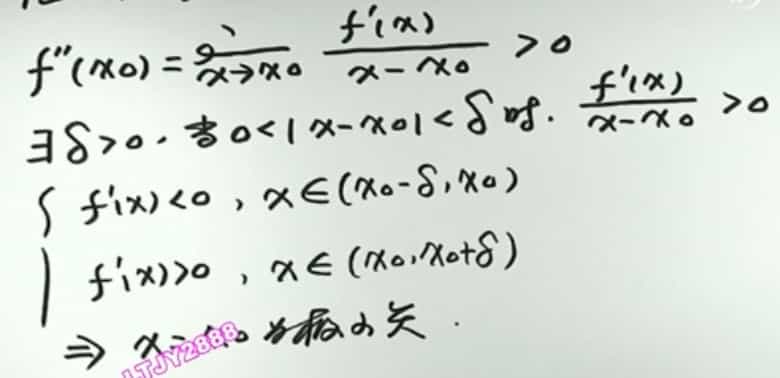 f''(x0) = lim x→x0 f'(x)/(x-x0) > 0
∃δ>0. 当0<|x-x0|<δ时. f'(x)/(x-x0) >0
{ f'(x)<0, x∈(x0-δ, x0)
f'(x)>0, x∈(x0, x0+δ)
⇒ x=x0为极小点.
LTJY2888